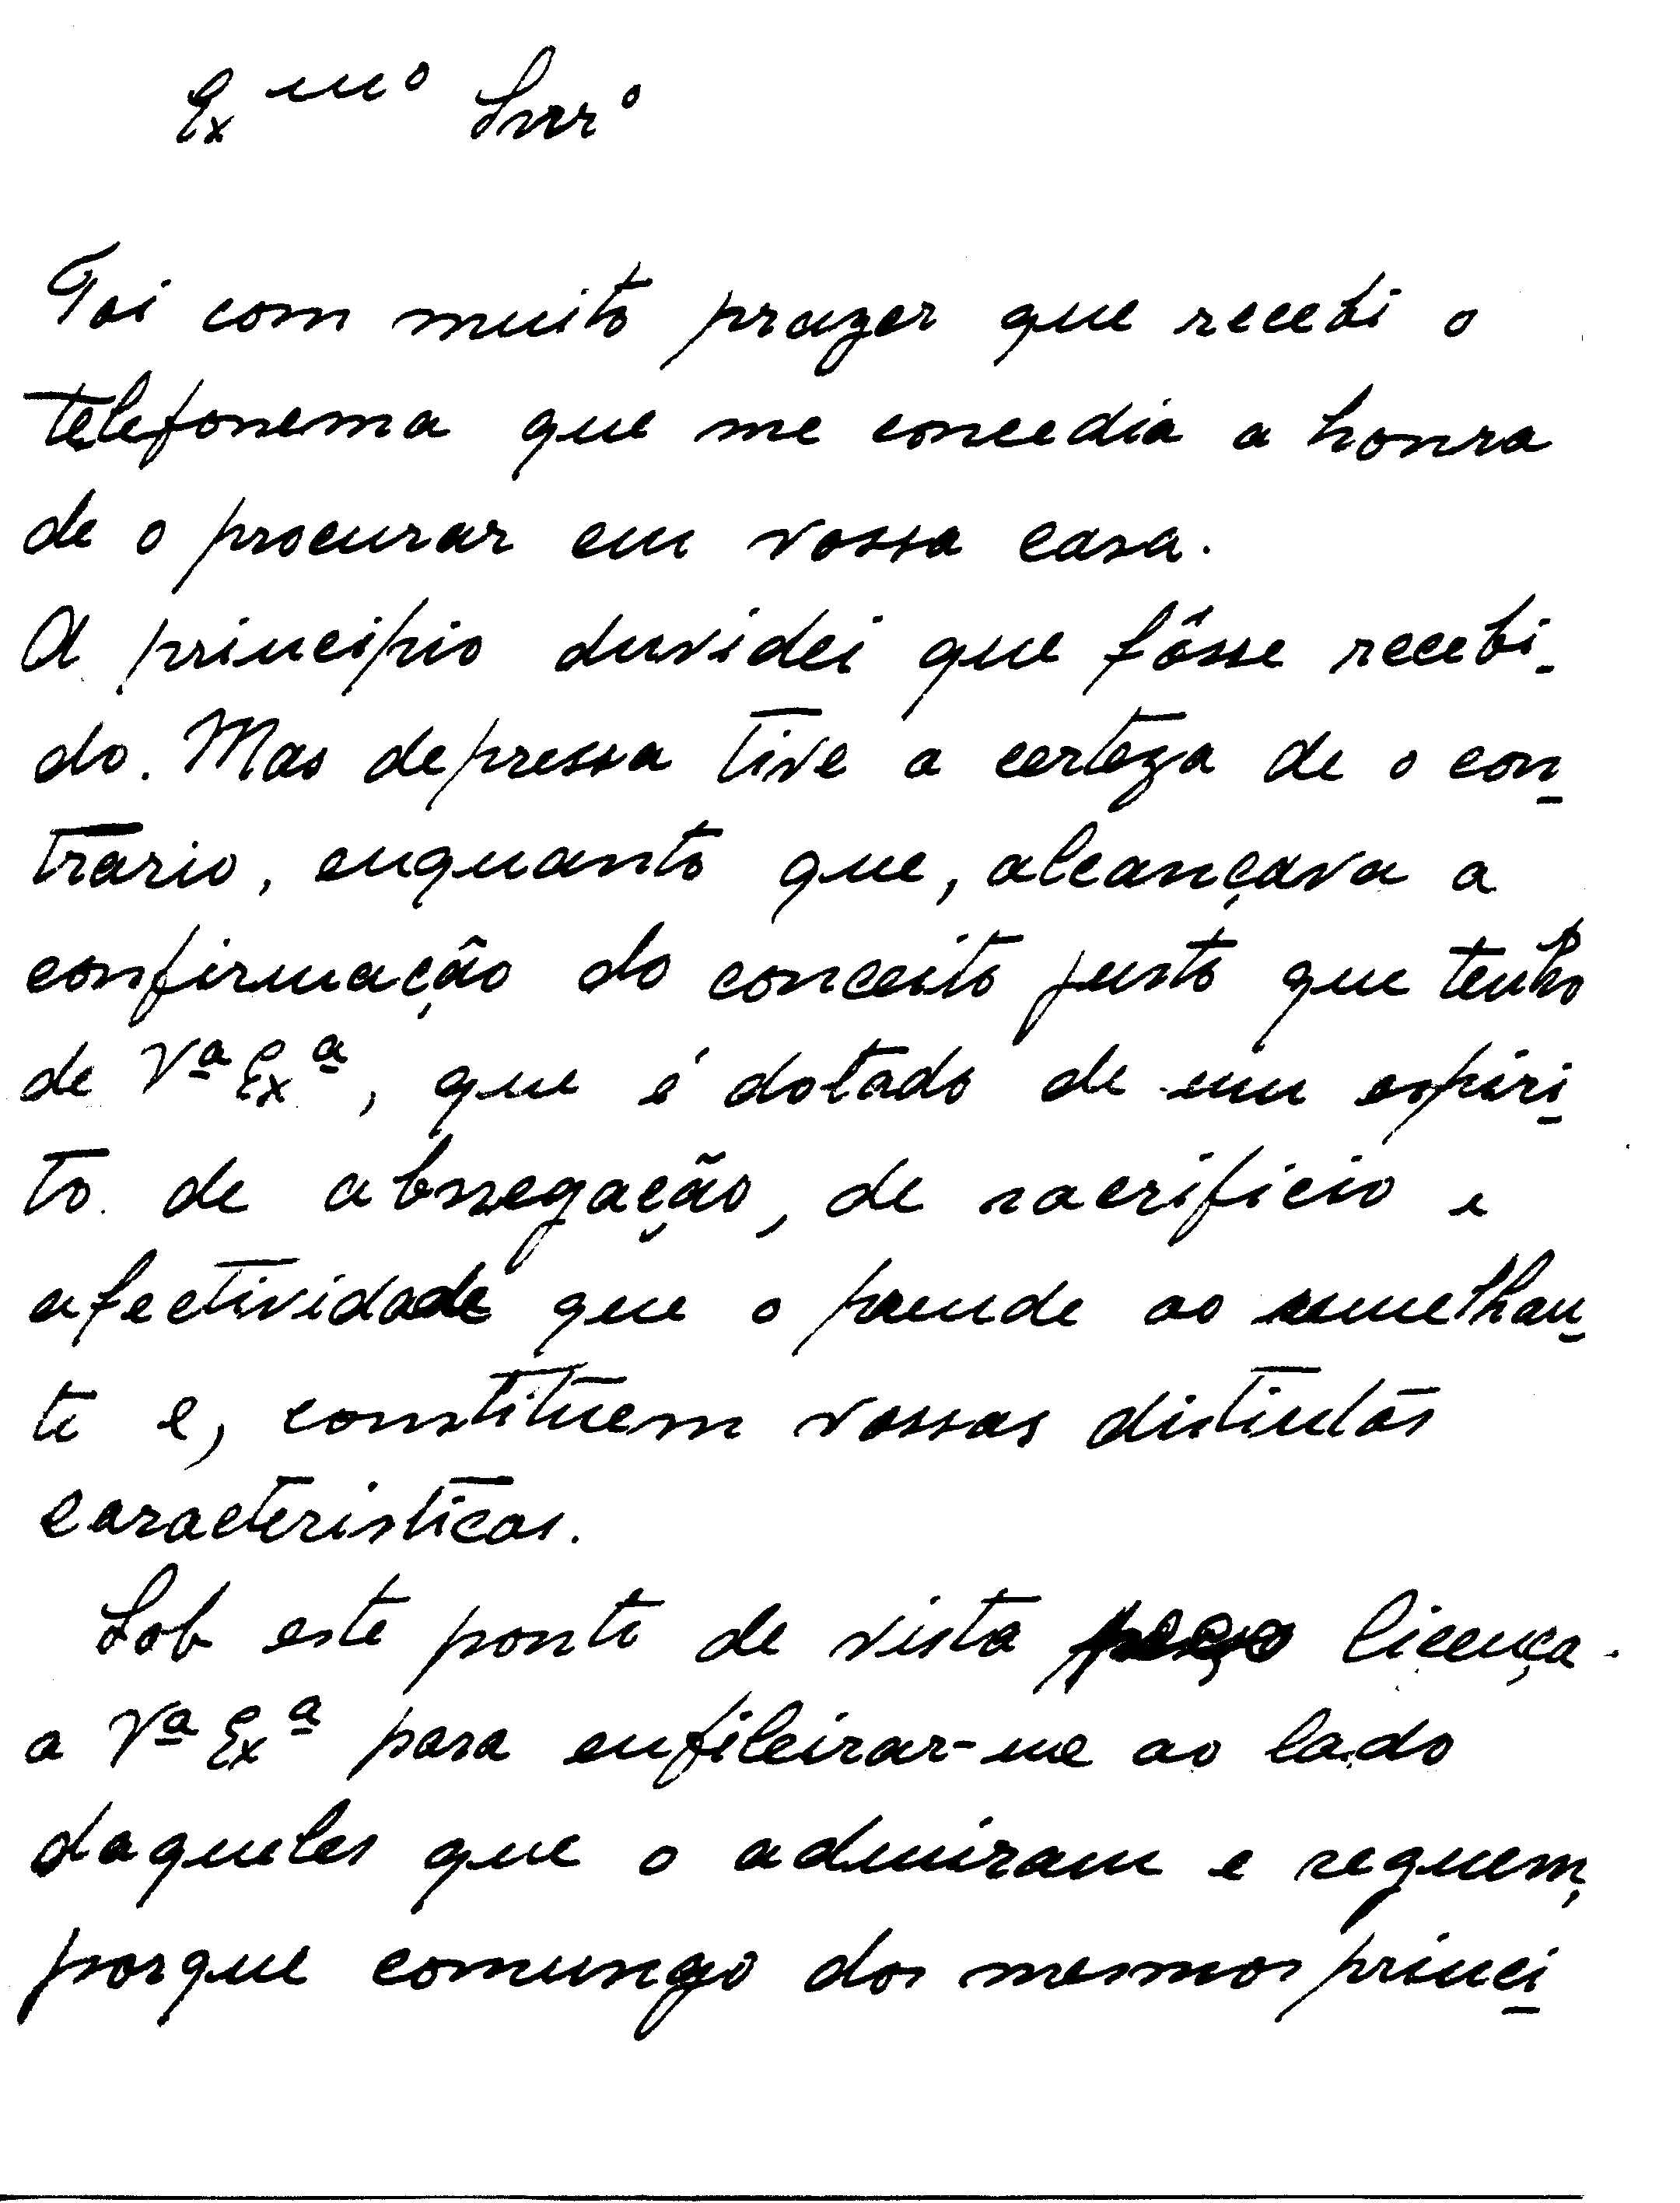 Exmo Snrrº
Foi com muito prazer que recebi o
telefonema que me concedia a honra
de o procurar em vossa casa.
A principio duvidei que fôsse recebi-
do. Mas depressa tive a certeza de o con-
trario, enquanto que, alcançava a
confirmação do conceito justo que tenho
de Vª Exª, que é dotado de um espiri-
to de abnegação, de sacrificio e
afectividade que o prende ao semelhan-
te e, constituem vossas distintas
caracteristicas.
Sob este ponto de vista peço licença
a Vª Exª para enfileirar-me ao lado
daqueles que o admiram e seguem,
porque comungo dos mesmos princi-